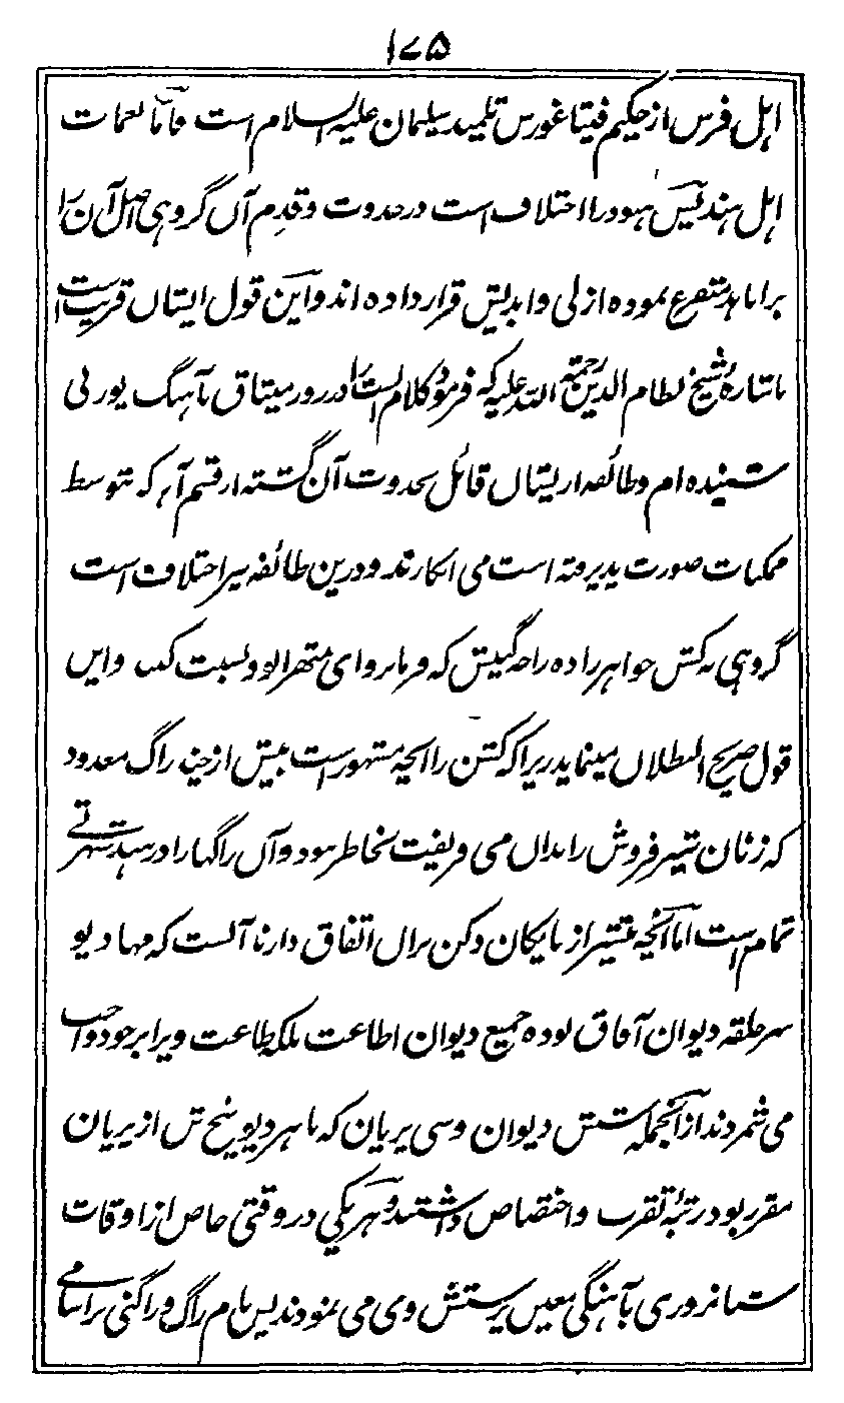 ۱۷۵
اهل فرس از حکیم فیثاغورس تلمیذ سلیمان علیه السلام است فاما نغمات
اهل هند پس هنود را اختلاف است در حدوث و قدم آں گروهی اصل آن را
برابد متفرع نموده ازلی و ابدیش قرار داده اند و این قول ایشاں قریب است
باشاره شیخ نظام الدین رحمة الله علیه که فرمود کلام الست را در روز میثاق بآهنگ پوربی
شنیده ام و طائفه از یشاں قائل بحدوث آن گشته از قسم آنکه بتوسط
ممکنات صورت پذیرفته است می انگارند و درین طائفه نیز اختلاف است
گروهی به کشن خواهرزاده راجه کنس که فرمانروای متهرا بود نسبت کنند و ایں
قول صریح البطلاں مینماید زیرا که کشن را انچه مشهور است بیش از چند راگ معدود
که زنان شیر فروش را بداں می فریفت بخاطر نبود و آں راگها را در هند شهرتے
تمام است اما آنچه بیشتر از نایکان دکن براں اتفاق دارند آنست که مهادیو
سر حلقه دیوان آفاق بوده جمیع دیوان اطاعت بلکه طاعت ویرا بر خود واجب
می شمردند از آنجمله شش دیوان و سی پریان که با هر دیو پنج تن از پریان
مقرر بود رتبهٔ تقرب و اختصاص داشتند و هریکی در وقتی خاص از اوقات
شبانروزی بآهنگی معین پرستش وی می نمودند پس نام راگ و راگنی بر اسامی